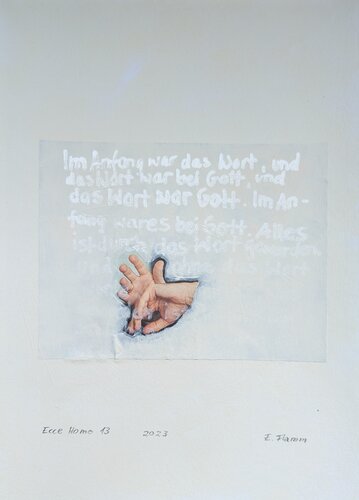 Im Anfang war das Wort, und
das Wort war bei Gott, und
das Wort war Gott. Im An-
fang war es bei Gott. Alles
ist durch das Wort geworden
und ohne das Wort
Ecce Homo 13 2023 E. Flamm